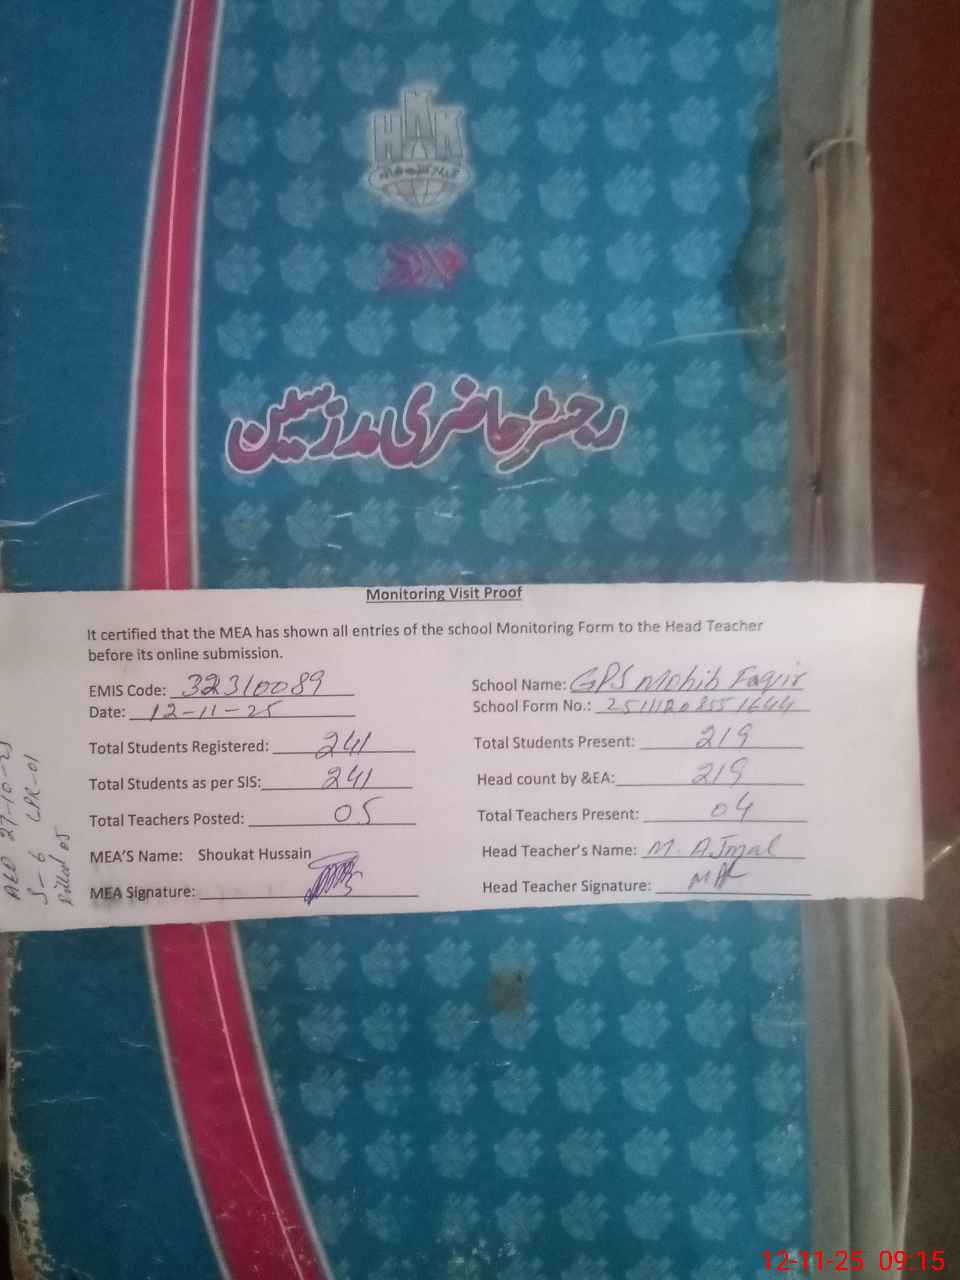 HAK
رجسٹر حاضری مدرسین
Monitoring Visit Proof
It certified that the MEA has shown all entries of the school Monitoring Form to the Head Teacher
before its online submission.
EMIS Code: 32310089 School Name: GPS Mohib Faqir
Date: 12-11-25 School Form No.:
Total Students Registered: 241 Total Students Present: 219
Total Students as per SIS: 241 Head count by &EA: 219
Total Teachers Posted: 05 Total Teachers Present: 04
MEA'S Name: Shoukat Hussain Head Teacher's Name: M. Ajmal
MEA Signature: Head Teacher Signature:
AEO 27-10-25
S-6 LPR-01
12-11-25 09:15